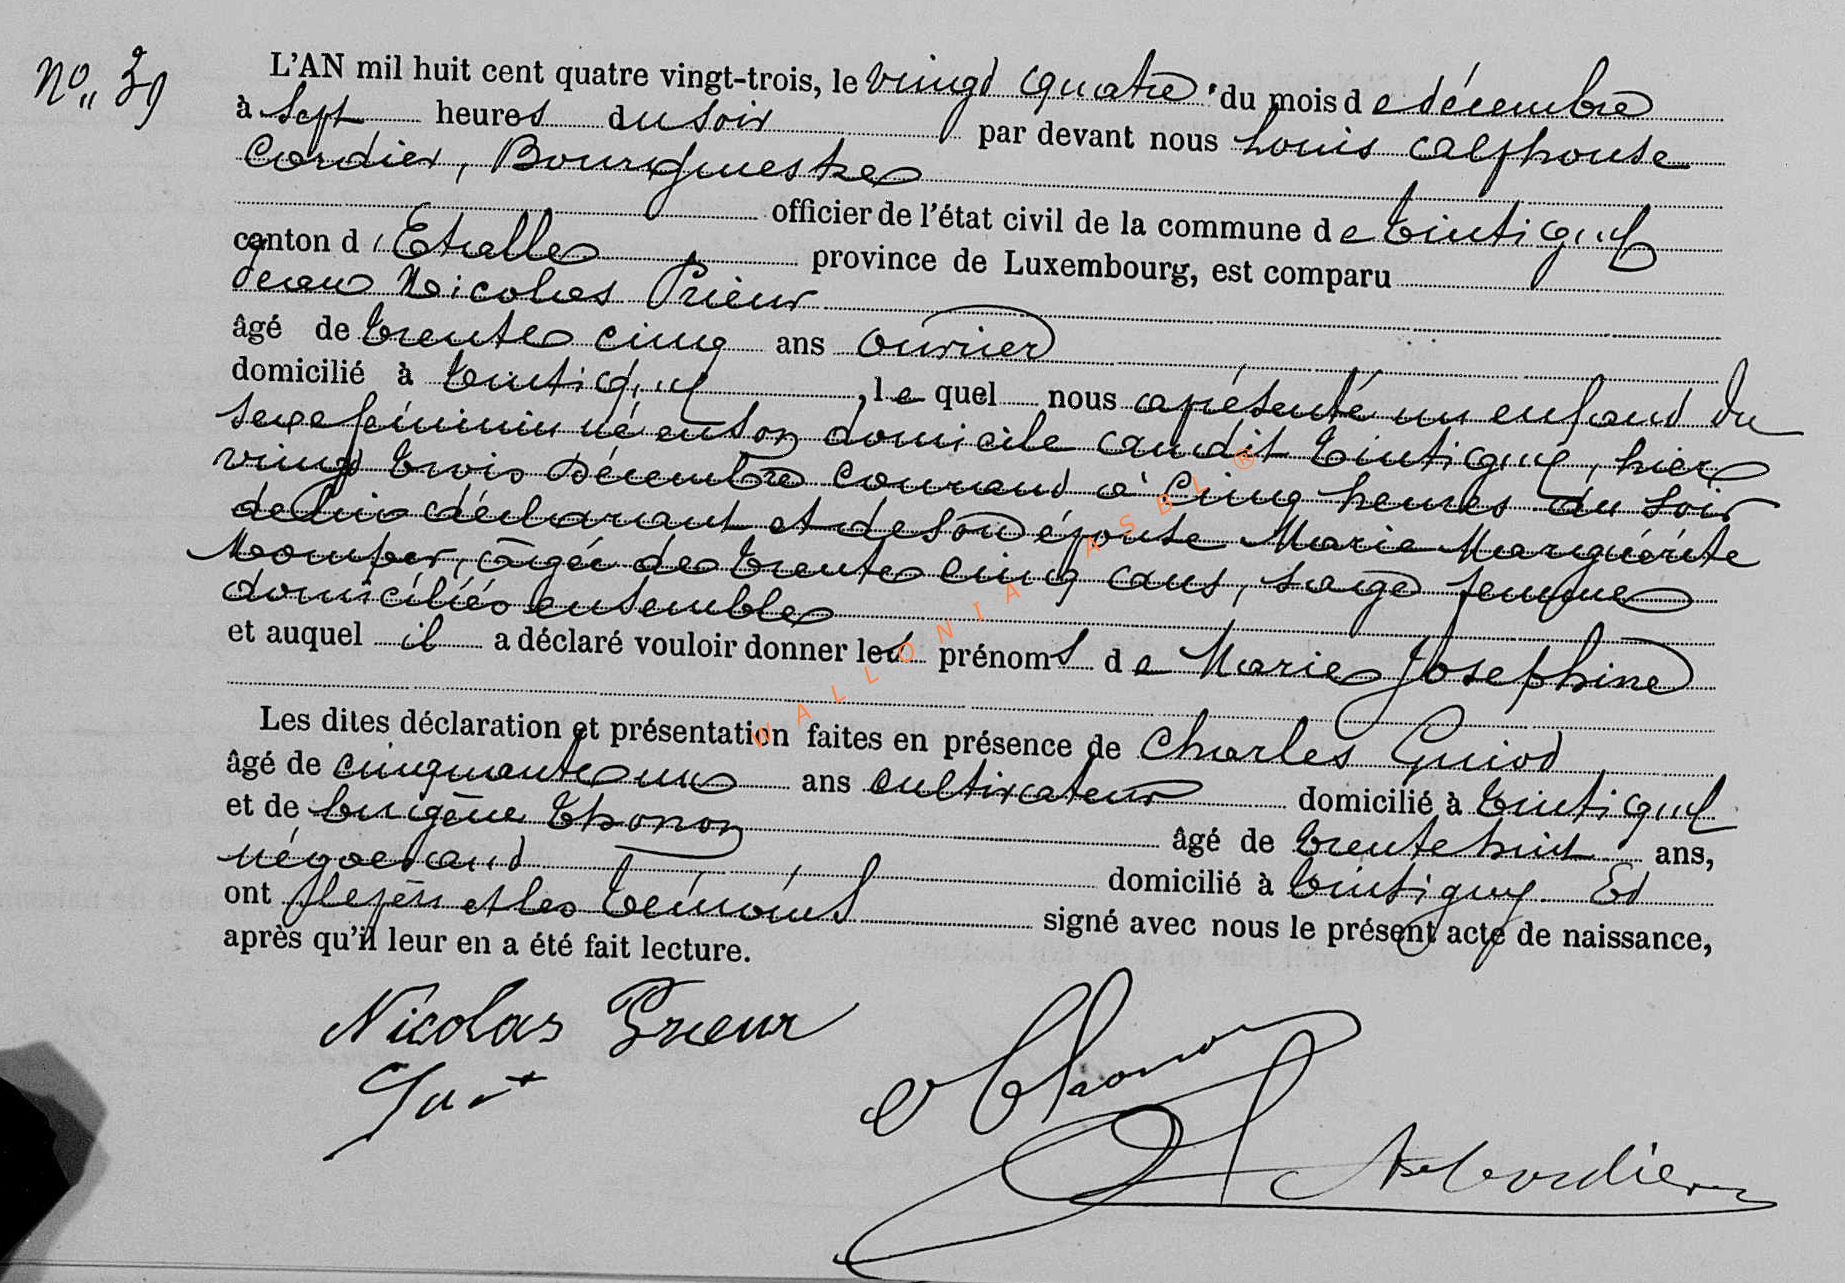 No 39
L'AN mil huit cent quatre vingt-trois, le vingt quatre du mois de décembre
à sept heures du soir par devant nous Louis Alphonse
Cordier, Bourgmestre
officier de l'état civil de la commune de Tintigny
canton d'Etalle province de Luxembourg, est comparu
Jean Nicolas Prieur
âgé de trente cinq ans ouvrier
domicilié à Tintigny, le quel nous a présenté un enfant du
sexe féminin né en son domicile audit Tintigny, hier
vingt trois décembre courant à cinq heures du soir
de lui déclarant et de son épouse Marie Marguérite
âgée de trente cinq ans, sage femme
domiciliés ensemble
et auquel il a déclaré vouloir donner les prénoms de Marie Josephine
Les dites déclaration et présentation faites en présence de Charles Guiot
âgé de cinquante un ans cultivateur domicilié à Tintigny
et de Eugène Thonon âgé de trente huit ans,
négociant domicilié à Tintigny. Et
ont le père et les témoins signé avec nous le présent acte de naissance,
après qu'il leur en a été fait lecture.
WALLONIA ASBL ®
Nicolas Prieur
Thonon
Cordier